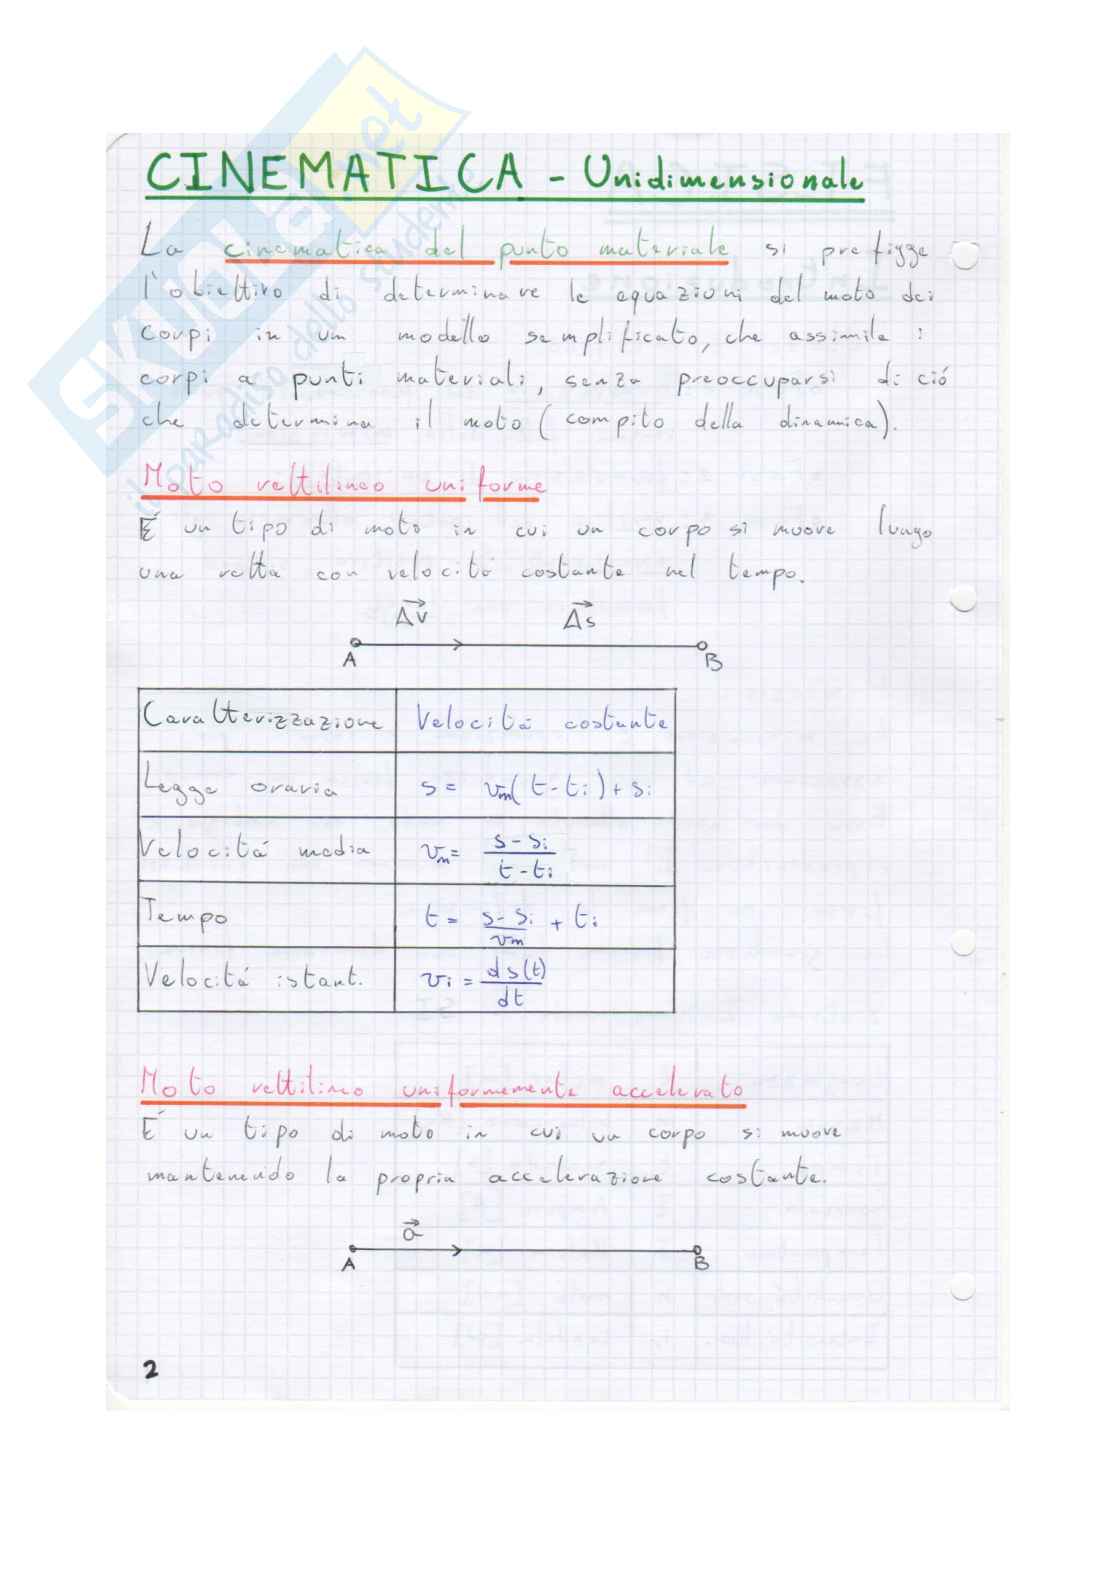 CINEMATICA - Unidimensionale
La cinematica del punto materiale si prefigge
l'obiettivo di determinare le equazioni del moto dei
corpi in un modello semplificato, che assimila i
corpi a punti materiali, senza preoccuparsi di ció
che determina il moto (compito della dinamica).
Moto rettilineo uniforme
É un tipo di moto in cui un corpo si muove lungo
una retta con velocitá costante nel tempo.
Δv⃗ Δs⃗
A B
Caratterizzazione Velocitá costante
Legge oraria s = vm(t - ti) + si
Velocitá media vm = (s - si)/(t - ti)
Tempo t = (s - si)/vm + ti
Velocitá istant. vi = ds(t)/dt
Moto rettilineo uniformemente accelerato
É un tipo di moto in cui un corpo si muove
mantenendo la propria accelerazione costante.
a⃗
A B
2
SKUOLA.net
il paradiso dello studente